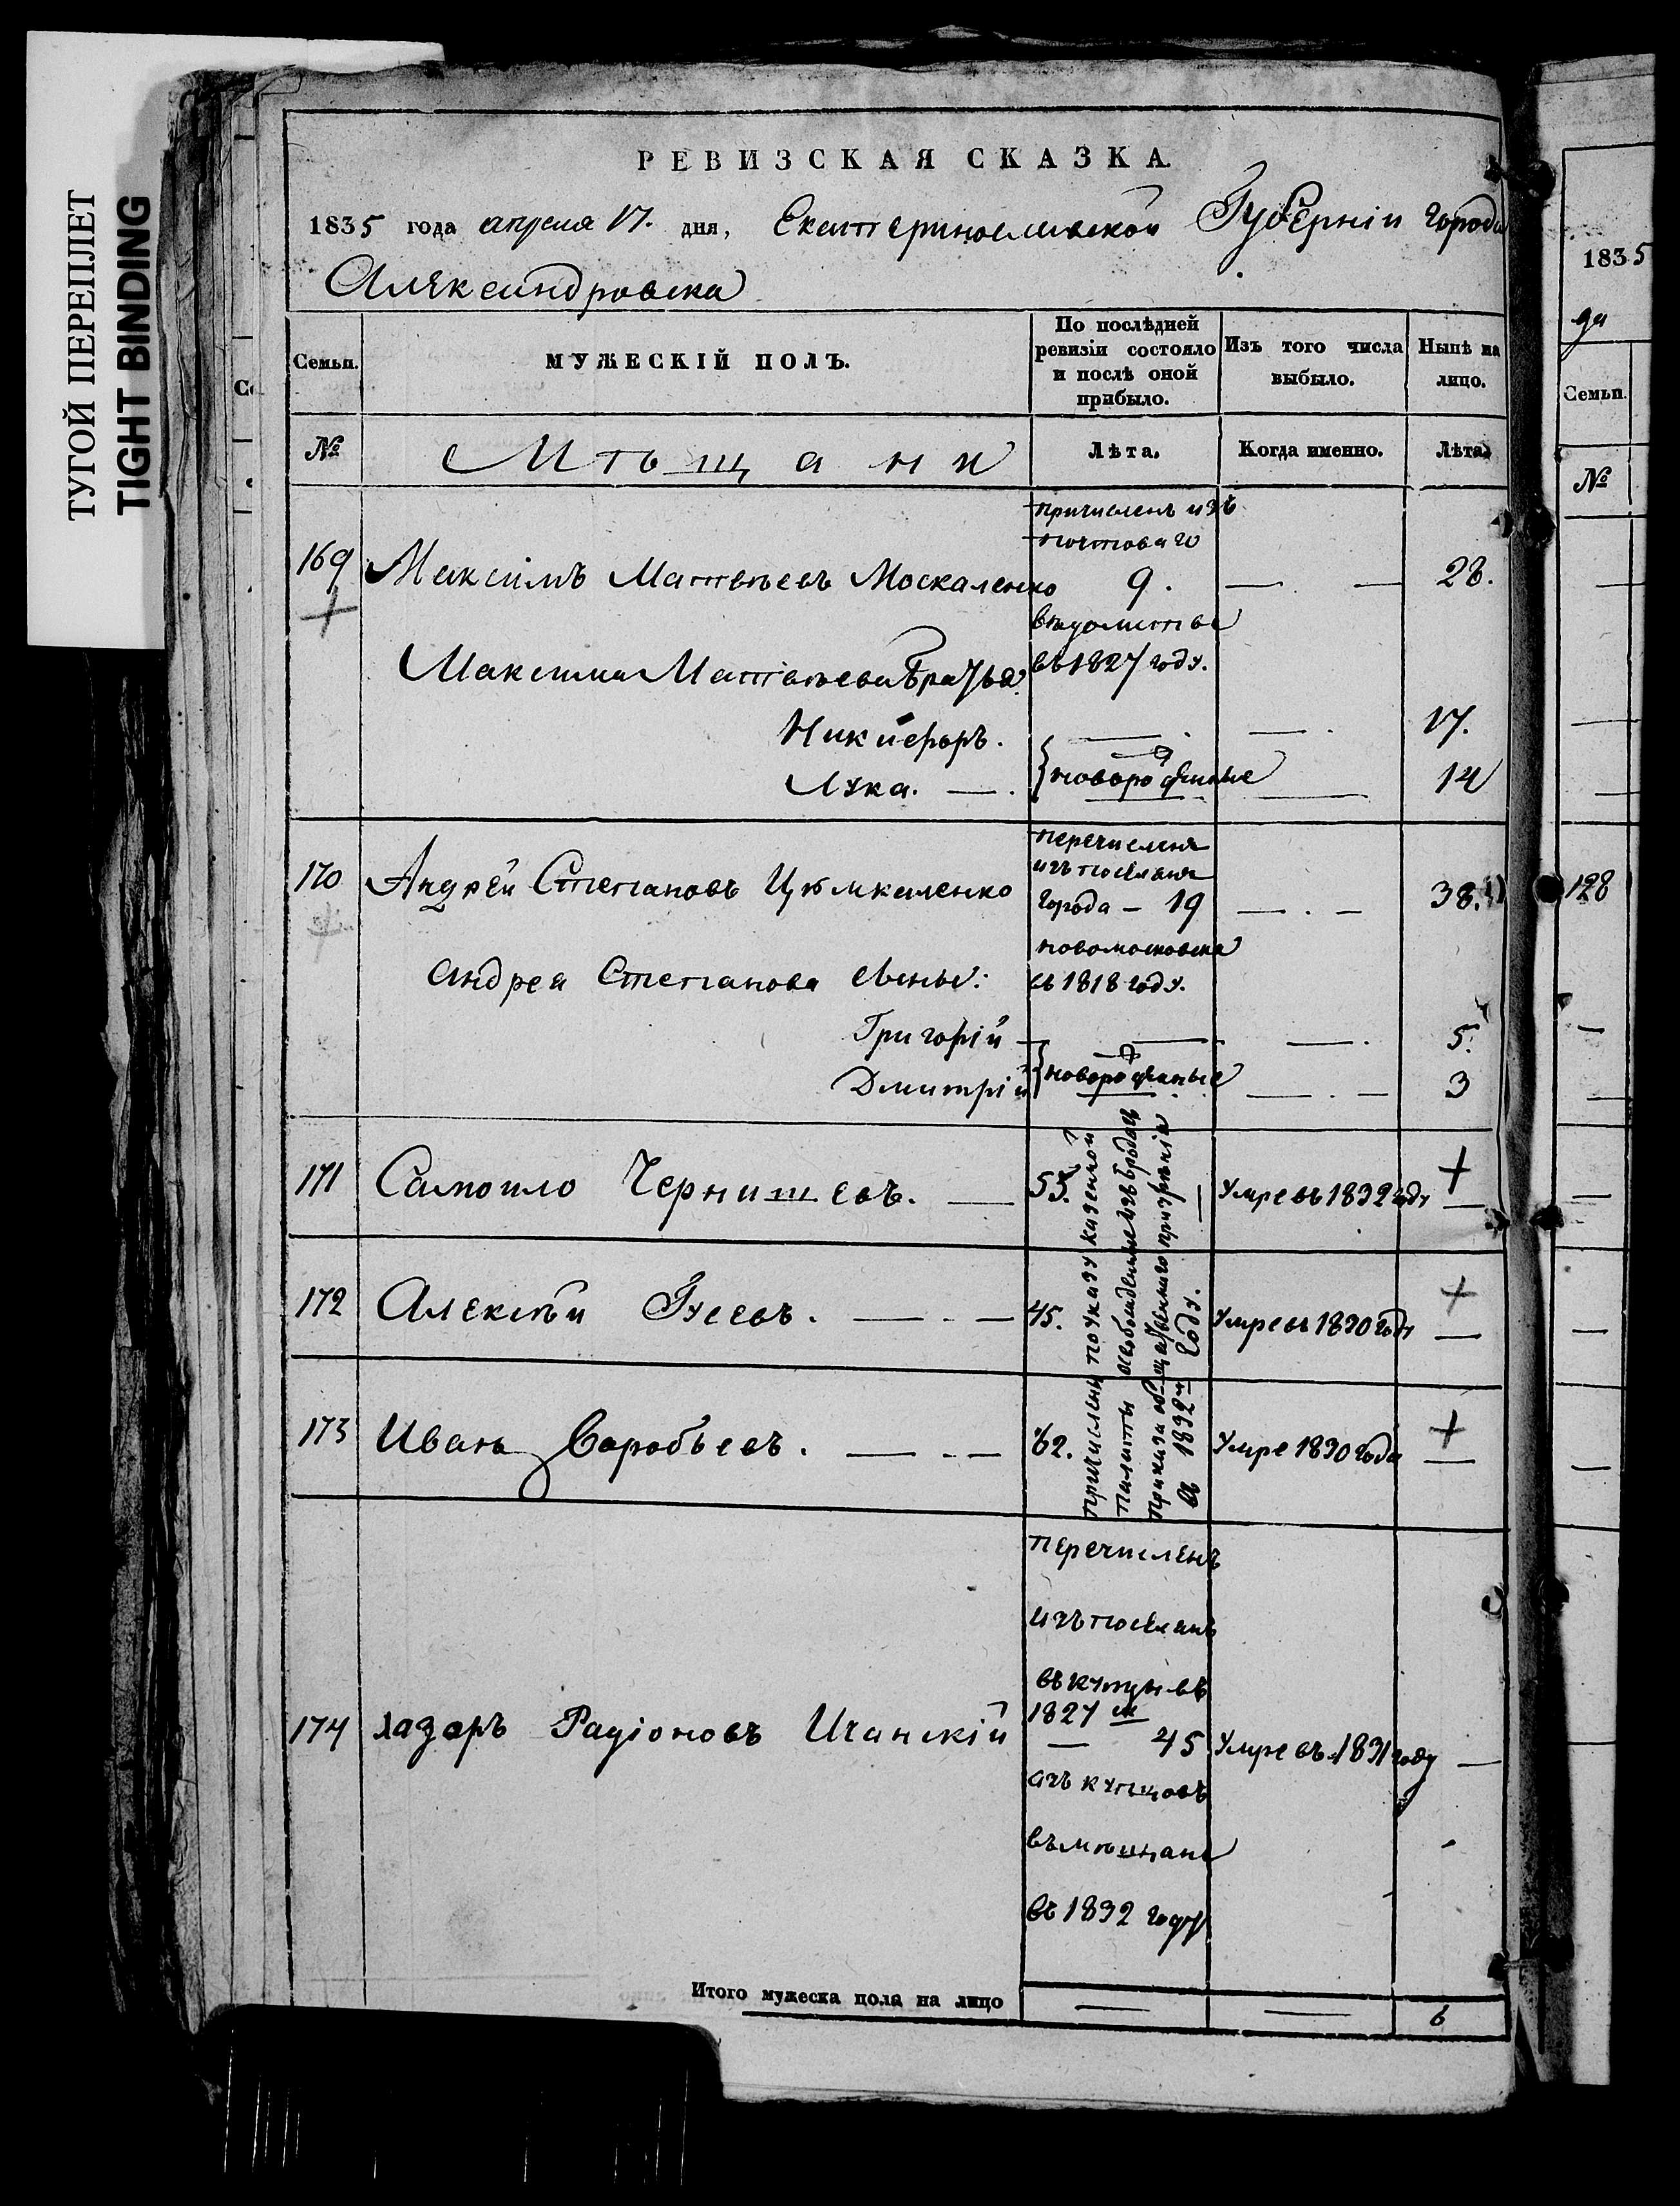 ТУГОЙ ПЕРЕПЛЕТ
TIGHT BINDING
РЕВИЗСКАЯ СКАЗКА.
1835 года апреля 17. дня, Екатеринославской Губерніи города
Александровска
Семьи.
МУЖЕСКІЙ ПОЛЪ.
По послѣдней
ревизіи состояло
и послѣ оной
прибыло.
Изъ того числа
выбыло.
Нынѣ на
лицо.
№
Мѣщане
Лѣта.
Когда именно.
Лѣта.
причисленъ изъ
почтоваго
169 Максимъ Матвѣевъ Москаленко 9. — — 28.
въ 1827 году.
Максима Матвѣева Братья.
Никифоръ. — — 17.
Лука. — новорожденные — 14
перечисленъ
изъ поселянъ
170 Андрей Степановъ Цымкаленко города — 19 — . — 38.
новомосковска
въ 1818 году.
Андрея Степанова сыновья:
Григорій — — 5.
Дмитрій новорожденные — . — 3
171 Самойло Чернишевъ. — 55. — Умре въ 1832 году +
172 Алексѣй Гусевъ. — . — 45. Умре въ 1830 году +
173 Иванъ Воробьевъ. — . — 62. Умре 1830 года +
причислены по указу казенной
Палаты освобожденные изъ бродягъ
Приказа общественнаго призрѣнія
въ 1832 м году.
перечисленъ
изъ поселянъ
въ купцы въ
1827 м
174 Лазарь Радіоновъ Ичанскій — 45 Умре въ 1831 году —
изъ купцовъ
въ мѣщане
въ 1832 году
Итого мужеска пола на лицо — — 6
1835
Семьи.
№
128